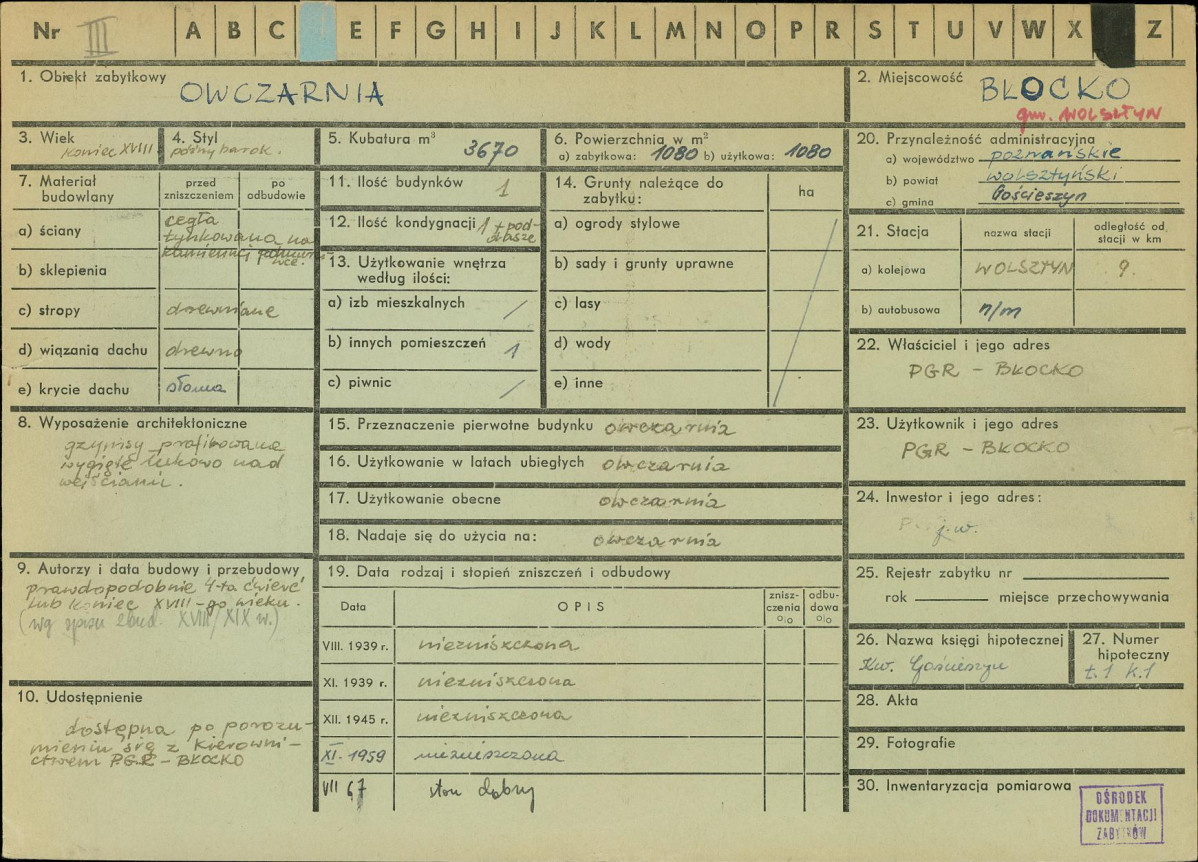 Nr III A B C E F G H I J K L M N O P R S T U V W X Z
1. Obiekt zabytkowy
OWCZARNIA
2. Miejscowość
BŁOCKO
gm. WOLSZTYN
3. Wiek
koniec XVIII
4. Styl
późny barok.
5. Kubatura m³
3670
6. Powierzchnia w m²
a) zabytkowa: 1080 b) użytkowa: 1080
7. Materiał budowlany
przed zniszczeniem
po odbudowie
a) ściany
cegła
tynkowana na
kamiennej podmurów-
ce.
b) sklepienia
c) stropy drewniane
d) wiązania dachu drewno
e) krycie dachu słoma
8. Wyposażenie architektoniczne
gzymsy profilowane
wygięte łukowo nad
wejściami.
9. Autorzy i data budowy i przebudowy
prawdopodobnie 4-ta ćwierć
lub koniec XVIII-go wieku.
(wg spisu bud. XVIII/XIX w.)
10. Udostępnienie
dostępna po porozu-
mieniu się z kierowni-
ctwem PGR - BŁOCKO
11. Ilość budynków 1
12. Ilość kondygnacji 1 + pod-
dasze
13. Użytkowanie wnętrza
według ilości:
a) izb mieszkalnych /
b) innych pomieszczeń 1
c) piwnic /
14. Grunty należące do
zabytku:
ha
a) ogrody stylowe
b) sady i grunty uprawne
c) lasy
d) wody
e) inne
15. Przeznaczenie pierwotne budynku owczarnia
16. Użytkowanie w latach ubiegłych owczarnia
17. Użytkowanie obecne owczarnia
18. Nadaje się do użycia na: owczarnia
19. Data rodzaj i stopień zniszczeń i odbudowy
Data
OPIS
znisz-
czenia
%
odbu-
dowa
%
VIII. 1939 r. niezniszczona
XI. 1939 r. niezniszczona
XII. 1945 r. niezniszczona
XI. 1959 niezniszczona
VII 67 stan dobry
20. Przynależność administracyjna
a) województwo poznańskie
b) powiat wolsztyński
c) gmina Gościeszyn
21. Stacja
nazwa stacji
odległość od
stacji w km
a) kolejowa WOLSZTYN 9.
b) autobusowa n/m
22. Właściciel i jego adres
PGR - BŁOCKO
23. Użytkownik i jego adres
PGR - BŁOCKO
24. Inwestor i jego adres:
j.w.
25. Rejestr zabytku nr
rok miejsce przechowywania
26. Nazwa księgi hipotecznej
Kw. Gościeszyn
27. Numer
hipoteczny
t.1 k.1
28. Akta
29. Fotografie
30. Inwentaryzacja pomiarowa
OŚRODEK
DOKUMENTACJI
ZABYTKÓW